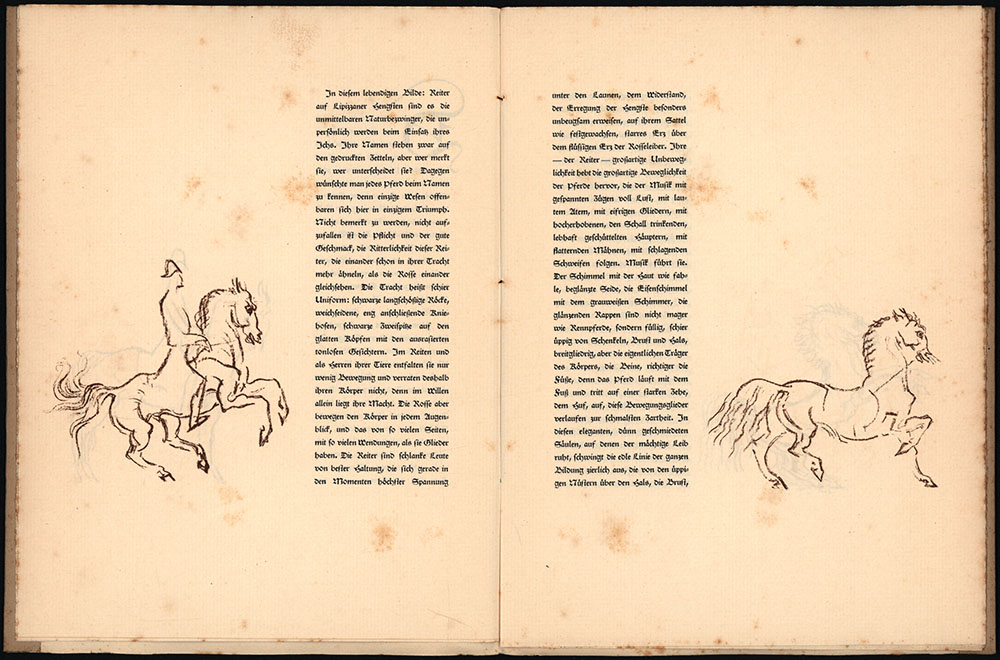 In diesem lebendigen Bilde: Reiter
auf Lipizzaner Hengsten sind es die
unmittelbaren Naturbezwinger, die un-
persönlich werden beim Einsatz ihres
Ichs. Ihre Namen stehen zwar auf
den gedruckten Zetteln, aber wer merkt
sie, wer unterscheidet sie? Dagegen
wünschte man jedes Pferd beim Namen
zu kennen, denn einzige Wesen offen-
baren sich hier in einzigem Triumph.
Nicht bemerkt zu werden, nicht auf-
zufallen ist die Pflicht und der gute
Geschmack, die Ritterlichkeit dieser Rei-
ter, die einander schon in ihrer Tracht
mehr ähneln, als die Rosse einander
gleichsehen. Die Tracht heißt schier
Uniform: schwarze langschößige Röcke,
weichseidene, eng anschließende Knie-
hosen, schwarze Zweispitze auf den
glatten Köpfen mit den ausrasierten
tonlosen Gesichtern. Im Reiten und
als Herren ihrer Tiere entfalten sie nur
wenig Bewegung und verraten deshalb
ihren Körper nicht, denn im Willen
allein liegt ihre Macht. Die Rosse aber
bewegen den Körper in jedem Augen-
blick, und das von so vielen Seiten,
mit so vielen Wendungen, als sie Glieder
haben. Die Reiter sind schlanke Leute
von bester Haltung, die sich gerade in
den Momenten höchster Spannung
unter den Launen, dem Widerstand,
der Erregung der Hengste besonders
unbeugsam erweisen, auf ihrem Sattel
wie festgewachsen, starres Erz über
dem flüssigen Erz der Rosseleiber. Ihre
— der Reiter — großartige Unbeweg-
lichkeit hebt die großartige Beweglichkeit
der Pferde hervor, die der Musik mit
gespannten Zügen voll Lust, mit lau-
tem Atem, mit eifrigen Gliedern, mit
hocherhobenen, den Schall trinkenden,
lebhaft geschüttelten Häuptern, mit
flatternden Mähnen, mit schlagenden
Schweifen folgen. Musik führt sie.
Der Schimmel mit der Haut wie fah-
le, beglänzte Seide, die Eisenschimmel
mit dem grauweißen Schimmer, die
glänzenden Rappen sind nicht mager
wie Rennpferde, sondern füllig, schier
üppig von Schenkeln, Brust und Hals,
breitgliedrig, aber die eigentlichen Träger
des Körpers, die Beine, richtiger die
Füße, denn das Pferd läuft mit dem
Fuß und tritt auf einer starken Zehe,
dem Huf, auf, diese Bewegungsglieder
verlaufen zur schmalsten Zartheit. In
diesen eleganten, dünn geschmiedeten
Säulen, auf denen der mächtige Leib
ruht, schwingt die edle Linie der ganzen
Bildung zierlich aus, die von den üppi-
gen Nüstern über den Hals, die Brust,